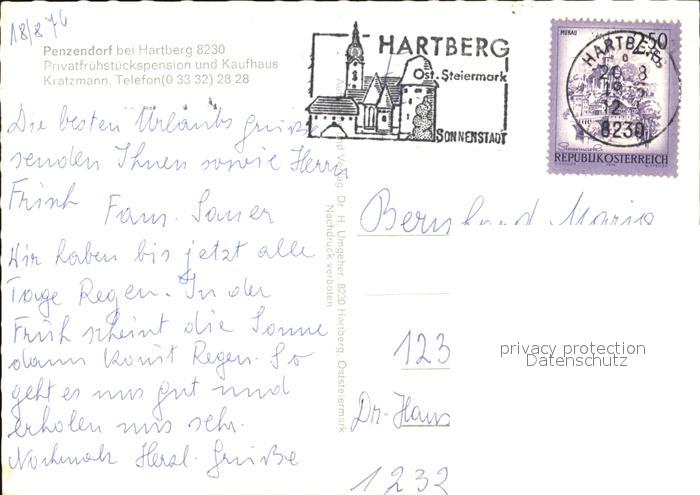 18/8 76
Penzendorf bei Hartberg 8230
Privatfrühstückspension und Kaufhaus
Kratzmann, Telefon (0 33 32) 28 28
Die besten Urlaubs grüße
senden Ihnen sowie Herrn
Frish Fam. Sauer
Wir haben bis jetzt alle
Tage Regen. In der
Früh scheint die Sonne
dann komt Regen. So
geht es uns gut und
erholen uns sehr.
Nochmals Herzl. Grüße
Verlag: Dr. H. Umgeher, 8230 Hartberg, Oststeiermark
Nachdruck verboten
HARTBERG
Ost-Steiermark
SONNENSTADT
MURAU
2.50
HARTBERG
8230
REPUBLIK ÖSTERREICH
Bernhard Maria
123
Dr-Hans
1232
privacy protection
Datenschutz